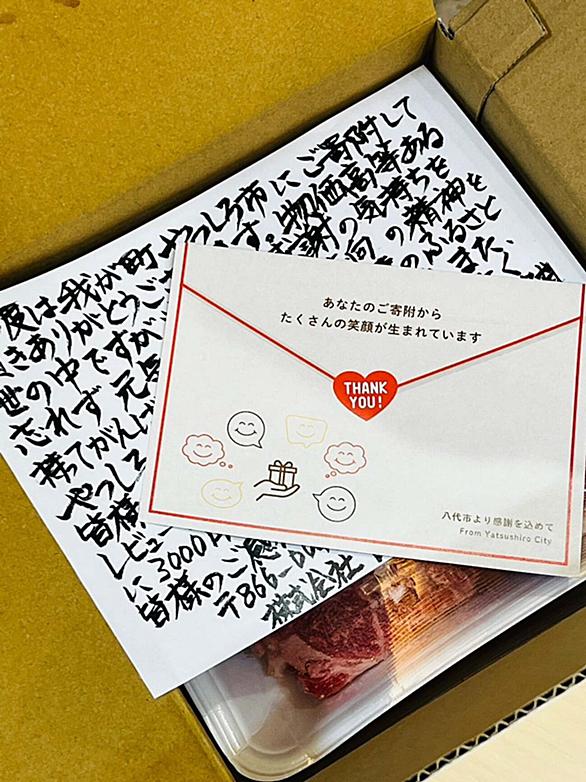 度は我が町やつしろ市にご寄附して
きありがとうござ す。物価高等ある
世の中ですが 感謝の気持ちを
忘れず 元気 の精神を
持てがんば のふるさと
やつしろ また、
皆様
レビュー
い3000
皆様のご感
〒866
株式会社
あなたのご寄附から
たくさんの笑顔が生まれています
THANK
YOU!
八代市より感謝を込めて
From Yatsushiro City